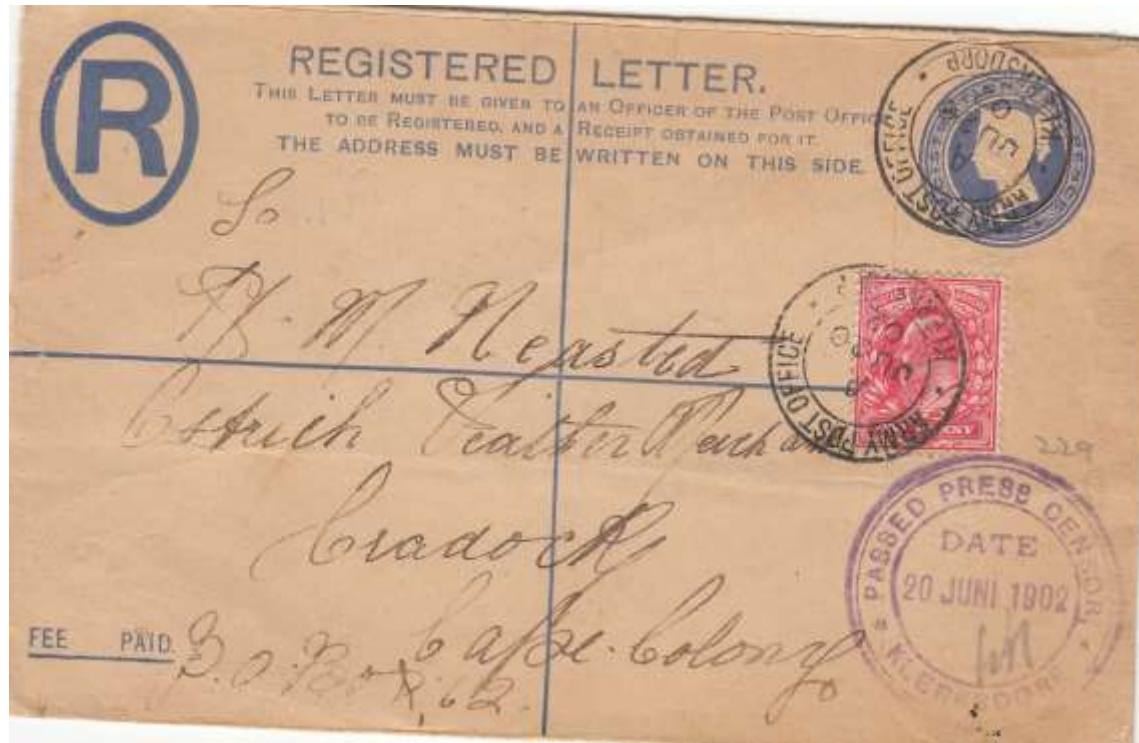 R
REGISTERED LETTER.
THIS LETTER MUST BE GIVEN TO AN OFFICER OF THE POST OFFICE
TO BE REGISTERED, AND A RECEIPT OBTAINED FOR IT.
THE ADDRESS MUST BE WRITTEN ON THIS SIDE.
ARMY POST OFFICE
To
M. Neasted
ARMY POST OFFICE
Ostrich Feather Merchant
229
Cradock
Cape Colony
P.O. Box, 62
FEE PAID.
PASSED PRESS CENSOR
DATE
20 JUNI 1902
KLERKSDORP